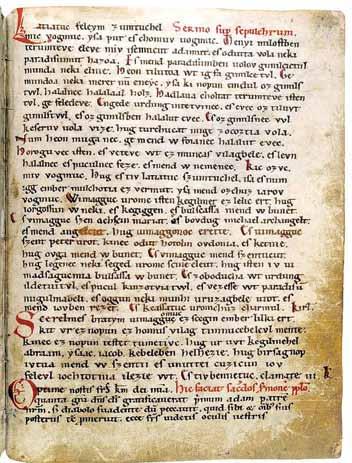 Sermo sup sepulchrum.
Latiatuc feleym zumtuchel
mic vogmuc. ysa pur es chomuv uogmuc. Menyi milostben
terumteve eleve miv isemucut adamut. es odutta vola neki
paradisumut hazoa. Es mend paradisumben uolov gimilcictul
munda neki elnie. Heon tilutoa wt ig fa gimilce tvl. Ge
mundoa neki meret nu eneyc. ysa ki nopun emdul oz gimils
twl. halalnec halalaal holz. Hadlaua choltat terumteve isten
tvl. ge feledeve. Engede urdung intetvinec. es evec oz tiluvt
gimilstwl. es oz gimilsben halalut evec. Es oz gimilsnec vvl
keseruv uola vize. hug turchucat mige zocoztia vola.
Num heon muganec. ge mend w foianec halalut evec.
Horoguvec isten. es veteve wt ez muncas vilagbele. es levn
halalnec es poculnec feze. es mend w nemenec. Kic ozvc.
miv vogmuc. Hug es tiv latiatuv szumtuchel. isa es num
igg ember mulchotia ez vermut. ysa mend ozchuz iarov
vogmuc. Wimagguc uromv isten kegilmet ez lelic ert. hug
iorgossun w neki. es kegiggen. es bulsassa mend w bunet.
Es vimagguc szen achscin mariat. es bovdug michael archangelt.
es mend angelcut. hug uimaggonoc erette. Es uimagguc
szent peter urot. kinec odut hotolm ovdonia. es ketnie.
hug ovga mend w bunet. Es vimagguc mend szentucut.
hug legenec neki seged uromc scine eleut. hug isten iv ui
madsagucmia bulsassa w bunet. Es zoboducha wt urdung
ildetuitvl. es pucul kinzotviatwl. es vezesse wt paradisu
nugulmabeli. es oggun neki munhi uruzagbele utot. es
mend iovben rezet. Es keassatuc uromchuz charmul. Kirl.
Scerelmes bratym uimagguc omus ez scegin ember lilki ert.
kit vr ez nopun ez homus vilag timnucebelevl mente.
kinec ez nopun testet tumetivc. hug ur uvt kegilmehel
abraam, ysaac, iacob. kebeleben helhezie. hug birsagnop
ivtva mend w szentii es unuttei cuzicun iov
felevl iochtotnia ilezie wt. Es tivbennetuc. clamate .iii. K
Optime nostis frs Hic faciat sacdos smone pplo.
quanta grã dns ds gratificaverat primum adam patre
nrm. diabolo suadente